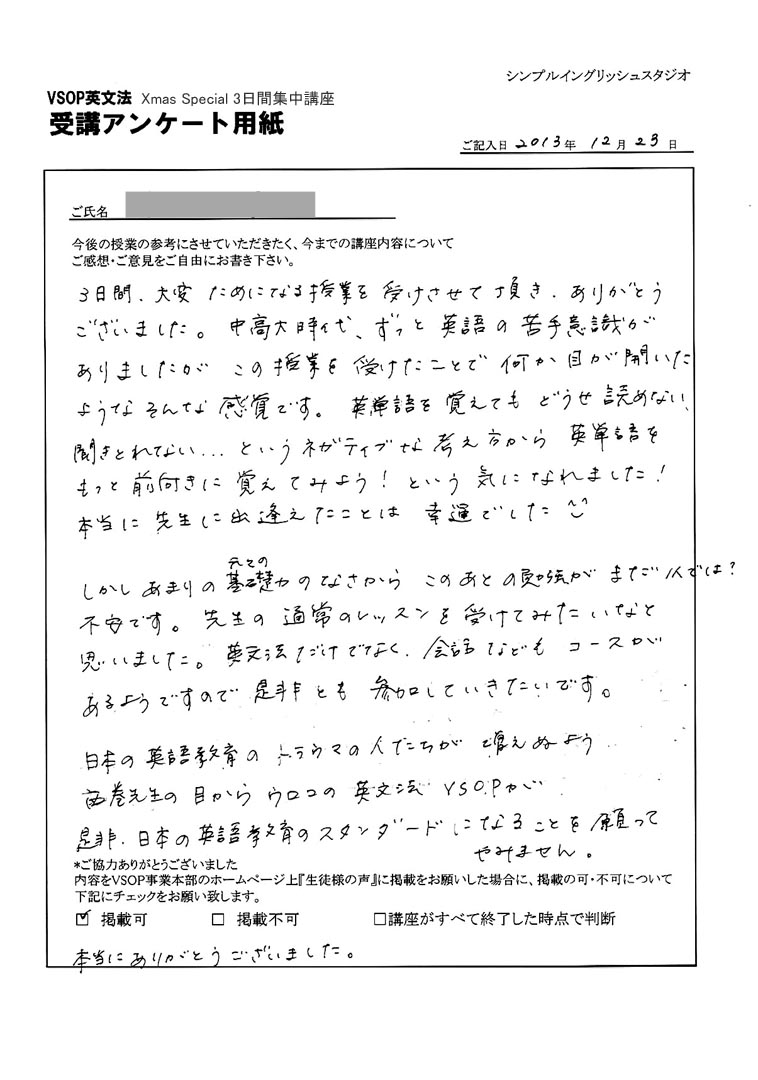 シンプルイングリッシュスタジオ
VSOP英文法 Xmas Special 3日間集中講座
受講アンケート用紙
ご記入日 2013年 12月 23日
ご氏名
今後の授業の参考にさせていただきたく、今までの講座内容について
ご感想・ご意見をご自由にお書き下さい。
3日間、大変 ためになる授業を 受けさせて頂き、ありがとう
ございました。中高大時代、ずっと英語の苦手意識が
ありましたが この授業を受けたことで 何か目が開いた
ような そんな 感覚です。英単語を覚えても どうせ読めない、
聞きとれない... というネガティブな考え方から 英単語を
もっと前向きに覚えてみよう! という気になれました!
本当に先生に出逢えたことは 幸運でした
しかし あまりの 元々の 基礎力のなさから このあとの勉強が まだ1人では?
不安です。先生の通常のレッスンを受けてみたいなと
思いました。英文法だけでなく、会話などもコースが
あるようですので 是非とも 参加していきたいです。
日本の英語教育のトラウマの人たちが 増えぬよう
西巻先生の目からウロコの英文法 VSOPが
是非、日本の英語教育のスタンダードになることを願って
やみません。
*ご協力ありがとうございました
内容をVSOP事業本部のホームページ上『生徒様の声』に掲載をお願いした場合に、掲載の可・不可について
下記にチェックをお願い致します。
☑ 掲載可 □ 掲載不可 □講座がすべて終了した時点で判断
本当にありがとうございました。